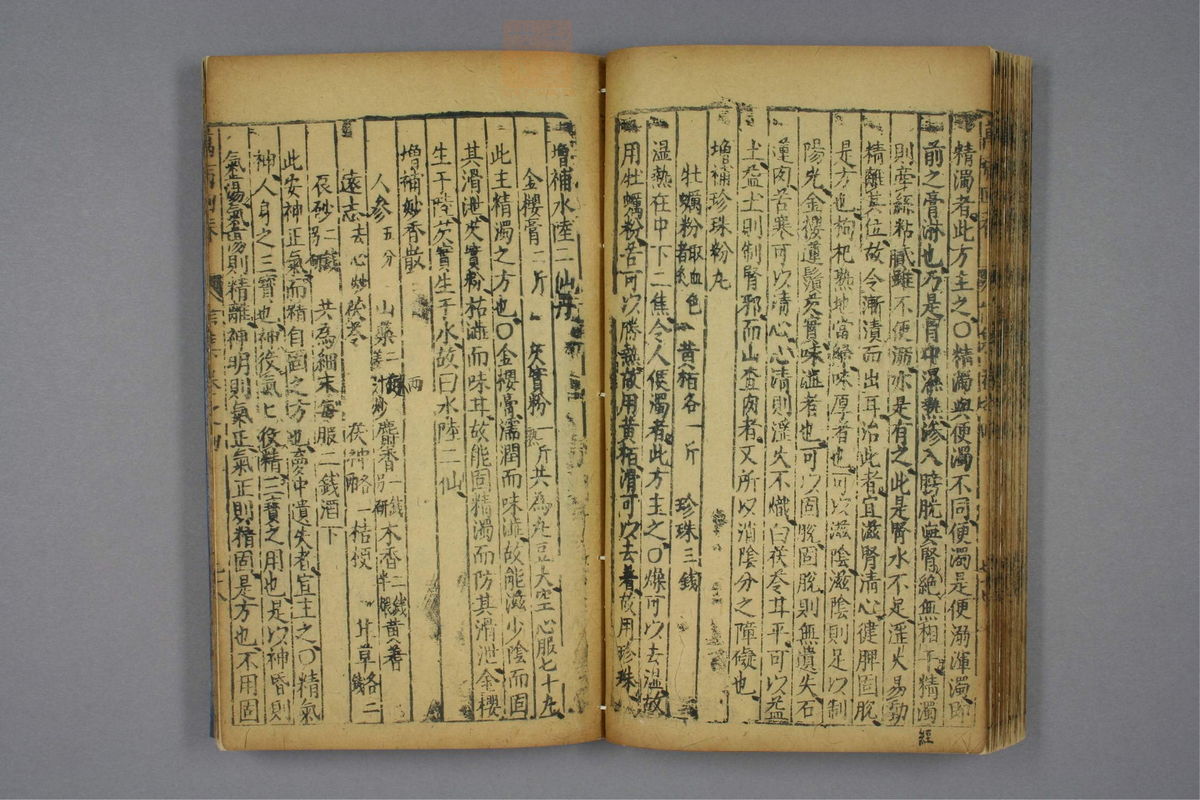 精濁者此方主之〇精濁與便濁不同便濁是便溺渾濁即
前之膏淋也乃是胃中濕熱滲入膀胱與腎絕無相干精濁
則牽絲粘膩雖不便溺亦是有之此是腎水不足淫火易動
精離其位故令漸漬而出耳治此者宜滋腎清心健脾固脫
是方也枸杞熟地當歸味厚者也可以滋陰滋陰則足以制
陽光金櫻蓮鬚芡實味澁者也可以固脫固脫則無遺失石
蓮肉苦寒可以清心心清則淫火不熾白茯苓甘平可以益
土益土則制腎邪而山查肉者又所以消陰分之障礙也
增補珍珠粉丸
牡蠣粉取血色者 黄栢各一斤 珍珠三錢
温熱在中下二焦令人便濁者此方主之〇燥可以去温故
用牡蠣粉苦可以勝熱故用黄栢滑可以去著故用珍珠
經
增補水陸二仙丹
金櫻膏一斤 芡實粉一斤共為丸豆大空心服七十丸
此主精濁之方也〇金櫻膏濡潤而味澁故能滋少陰而固
其滑泄芡實粉枯澁而味甘故能固精濁而防其滑泄金櫻
生于陸芡實生于水故曰水陸二仙
增補妙香散
人參五分 山藥二兩姜汁炒 麝香一錢另研 木香二錢半煨 黄蓍
遠志去心炒 茯苓 茯神各一 桔梗 甘草各二錢
辰砂二錢另研 共為細末每服二錢酒下
此安神正氣而精自固之方也夢中遺失者宜主之〇精氣
神人身之三寶也神役氣七役精三寶之用也是以神昏則
氣蕩氣蕩則精離神明則氣正氣正則精固是方也不用固